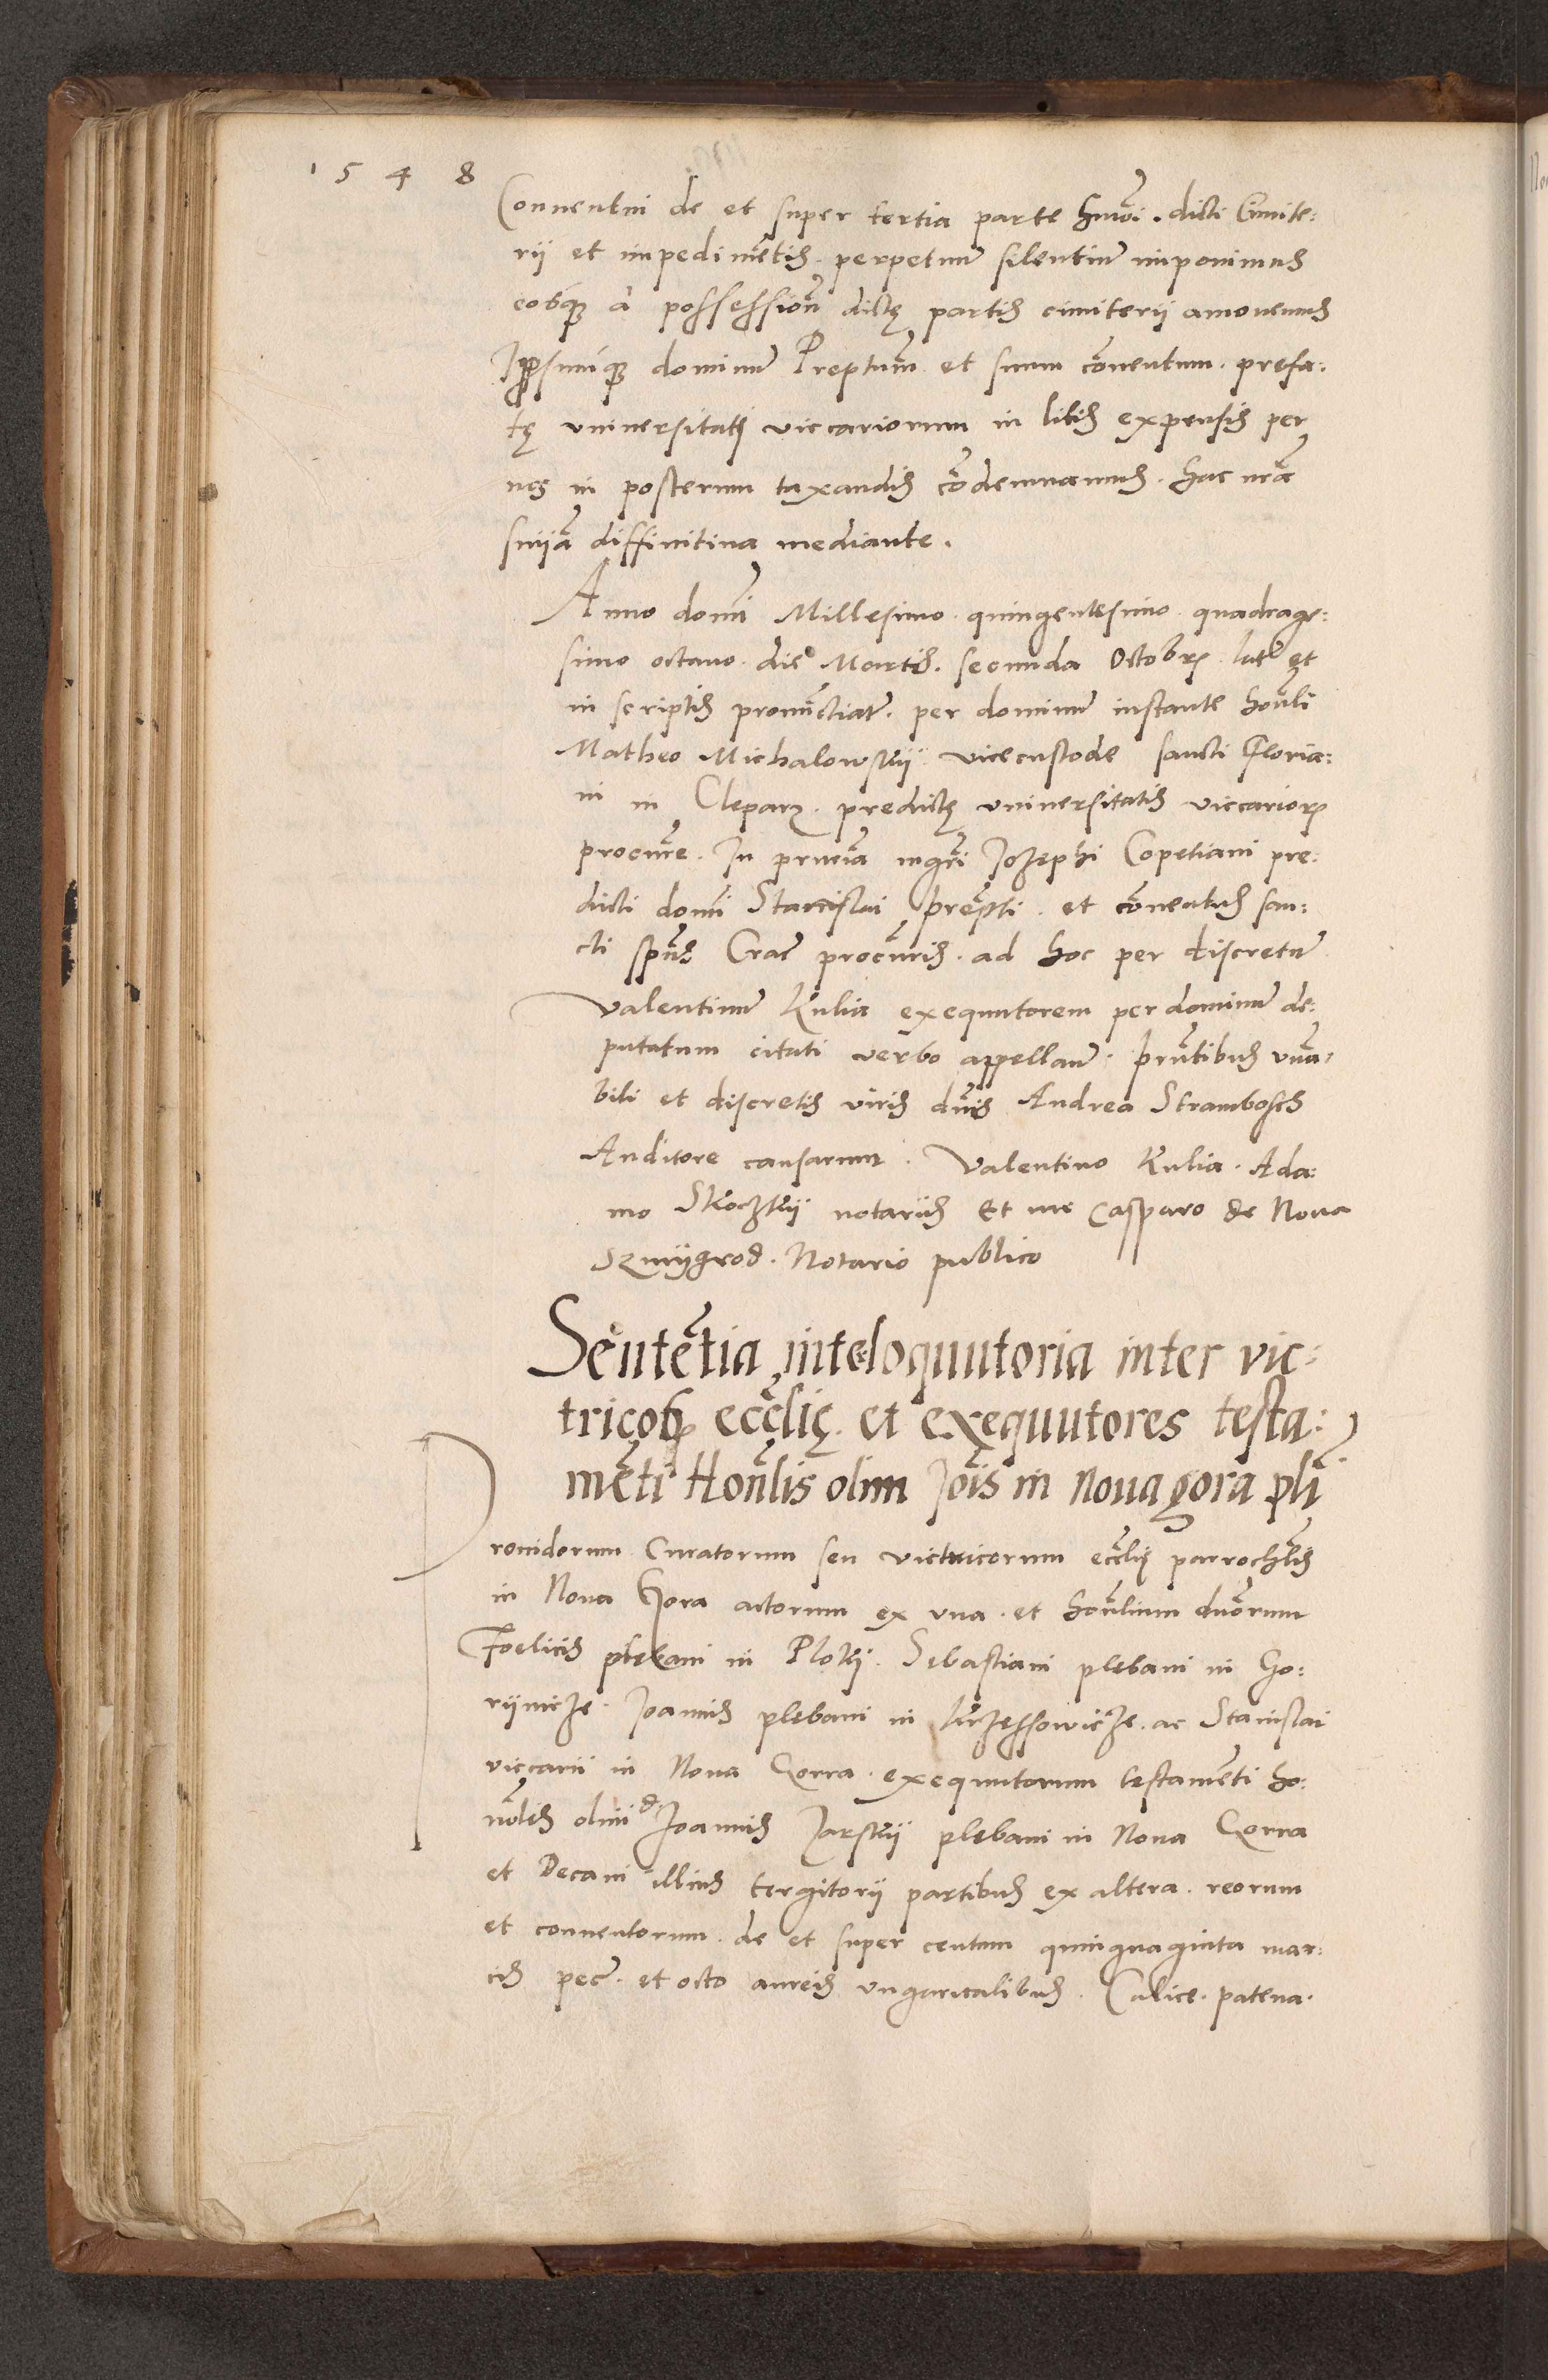 1548
Conventui de et super tertia parte hmõi. dicti Cimite:
rij et impedimẽtis. perpetuũ silentiũ imponimus
eosq̃ a possessioñ dictę partis cimiterij amovemus
Ipsumq̃ dominũ Preptum̃ et suum cõventum. prefa:
tę universitati viccariorum in litis expensis per
nos in posterum taxandis cõdemnamus. hac nrã
sniã diffinitiva mediante.
Anno domi Millesimo quingentesimo quadrage:
simo octavo. die Martis. secunda Octobr̃ lat̃ et
in scriptis pronũctiat̃. per dominũ instante honli
Matheo Michalowskij vicecustode sancti Floria:
ni in Cleparz. predictę universitatis viccarior̃
procure. In pñcia mgri Jozephi Copetiani pre:
dicti domi Stanislai prepti. et cõventus san:
cti spũs Crac̃ procuris. ad hoc per discretũ
Valentinũ Kulia exequutorem per dominũ de:
putatum citati verbo appellañ. pñtibus vna:
bili et discretis viris dnis Andrea Strambosch
Auditore causarum. Valentino Kulia. Ada:
mo Skoczkij notariis Et me Casparo de Nova
Szmijgrod. Notario publico
Sentẽtia interloquutoria inter vic:
tricor̃ ecclię. et exequutores testa:
mẽti Honlis olim Jois in Nova gora pli
Prouidorum Curatorum seu victricorum ecclię parrochlis
in Nova Gora actorum ex una. et honlium dnorum
Foelicis plebani in Plokij. Sebastiani plebani in Go:
rijnicze. Joannis plebani in Krzessowicze. ac Stanislai
viccarii in Nova Gorra. exequutorum testamenti ho:
nolis olim d. Joannis Jarskij plebani in Nova Gorra
et Decani illius tergitorij partibus ex altera. reorum
et conventorum. de et super centum quinquaginta mar:
cis pec̃. et octo aureis ungaricalibus. Calice. patena.